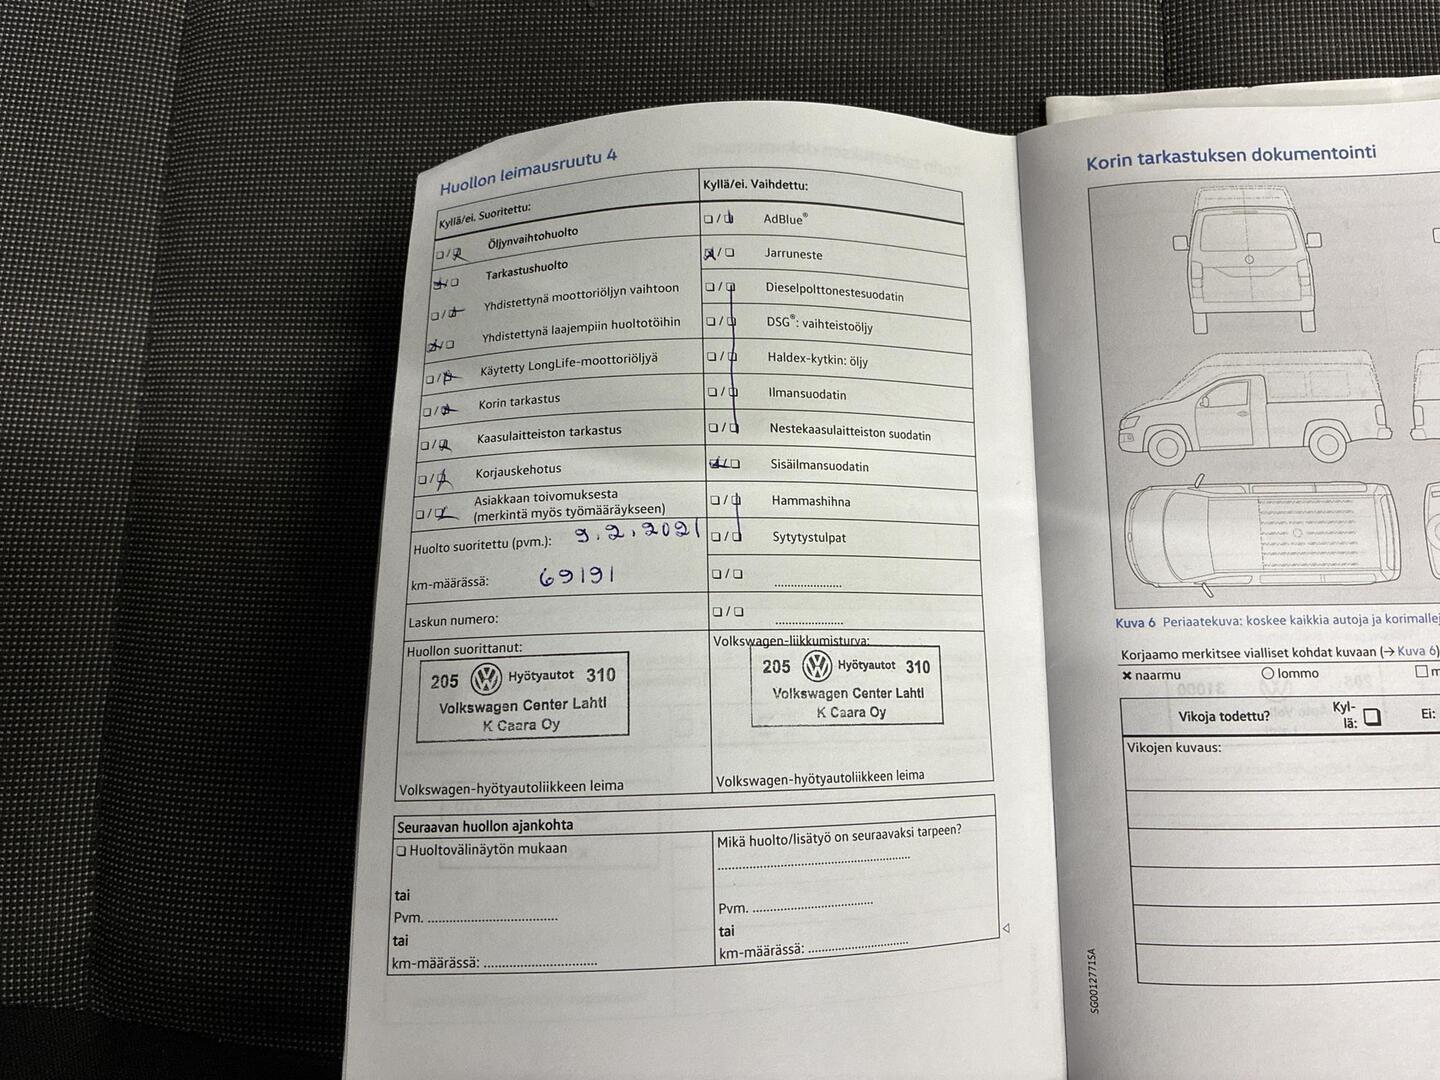 Huollon leimausruutu 4
Kyllä/ei. Suoritettu:
Öljynvaihtohuolto
Tarkastushuolto
Yhdistettynä moottoriöljyn vaihtoon
Yhdistettynä laajempiin huoltotöihin
Käytetty LongLife-moottoriöljyä
Korin tarkastus
Kaasulaitteiston tarkastus
Korjauskehotus
Asiakkaan toivomuksesta
(merkintä myös työmääräykseen)
Huolto suoritettu (pvm.): 9.2.2021
km-määrässä: 69191
Laskun numero:
Huollon suorittanut:
205 Hyötyautot 310
Volkswagen Center Lahti
K Caara Oy
Volkswagen-hyötyautoliikkeen leima
Kyllä/ei. Vaihdettu:
AdBlue®
Jarruneste
Dieselpolttonestesuodatin
DSG®: vaihteistoöljy
Haldex-kytkin: öljy
Ilmansuodatin
Nestekaasulaitteiston suodatin
Sisäilmansuodatin
Hammashihna
Sytytystulpat
Volkswagen-liikkumisturva:
205 Hyötyautot 310
Volkswagen Center Lahti
K Caara Oy
Volkswagen-hyötyautoliikkeen leima
Seuraavan huollon ajankohta
Huoltovälinäytön mukaan
tai
Pvm.
tai
km-määrässä:
Mikä huolto/lisätyö on seuraavaksi tarpeen?
Pvm.
tai
km-määrässä:
Korin tarkastuksen dokumentointi
Kuva 6 Periaatekuva: koskee kaikkia autoja ja korimallej
Korjaamo merkitsee vialliset kohdat kuvaan (→ Kuva 6)
naarmu
lommo
Vikoja todettu?
Kyl-
lä:
Ei:
Vikojen kuvaus:
SG0012771SA